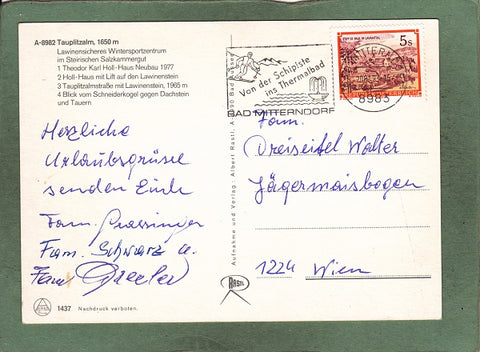 A-8982 Tauplitzalm, 1650 m
Lawinensicheres Wintersportzentrum
im Steirischen Salzkammergut
1 Theodor Karl Holl-Haus Neubau 1977
2 Holl-Haus mit Lift auf den Lawinenstein
3 Tauplitzalmstraße mit Lawinenstein, 1965 m
4 Blick vom Schneiderkogel gegen Dachstein
und Tauern
Herzliche
Urlaubsgrüsse
senden Euch
Fam.
Fam. Schwarz u.
Fam
1437 Nachdruck verboten.
Aufnahme und Verlag: Albert Rastl, A-8990 Bad Aussee
Rastl
Von der Schipiste
ins Thermalbad
BAD MITTERNDORF
8983
5s
Fam.
Dreiseitel Walter
Jägermaisbogen
1224 Wien